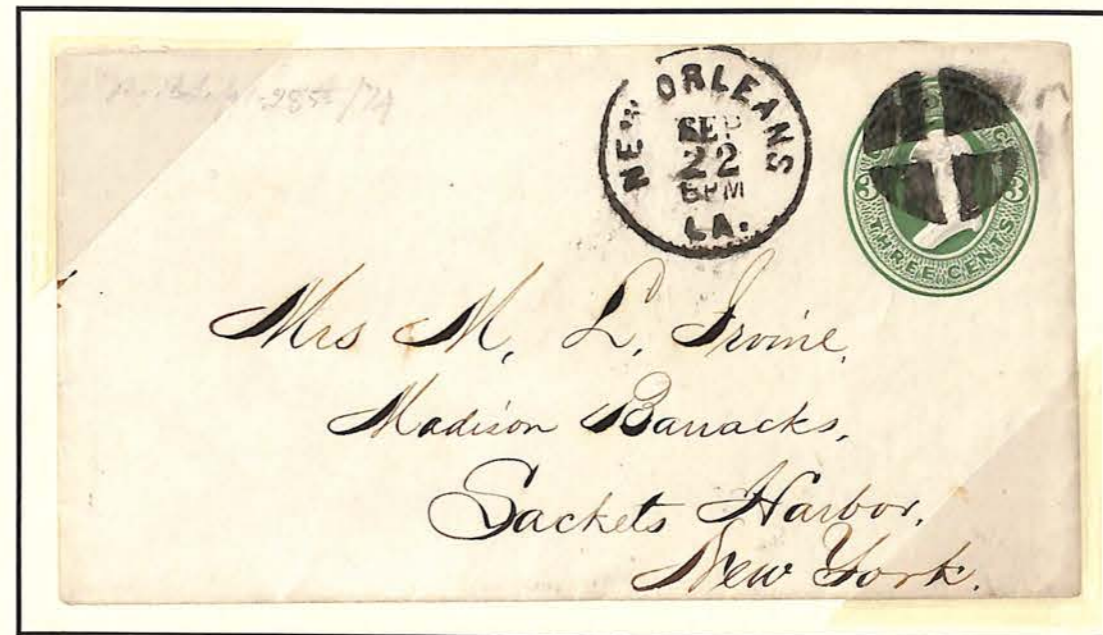 28th/74
NEW ORLEANS
SEP
22
6PM
LA.
3 THREE CENTS 3
Mrs M. L. Irvine,
Madison Barracks,
Sackets Harbor,
New York.